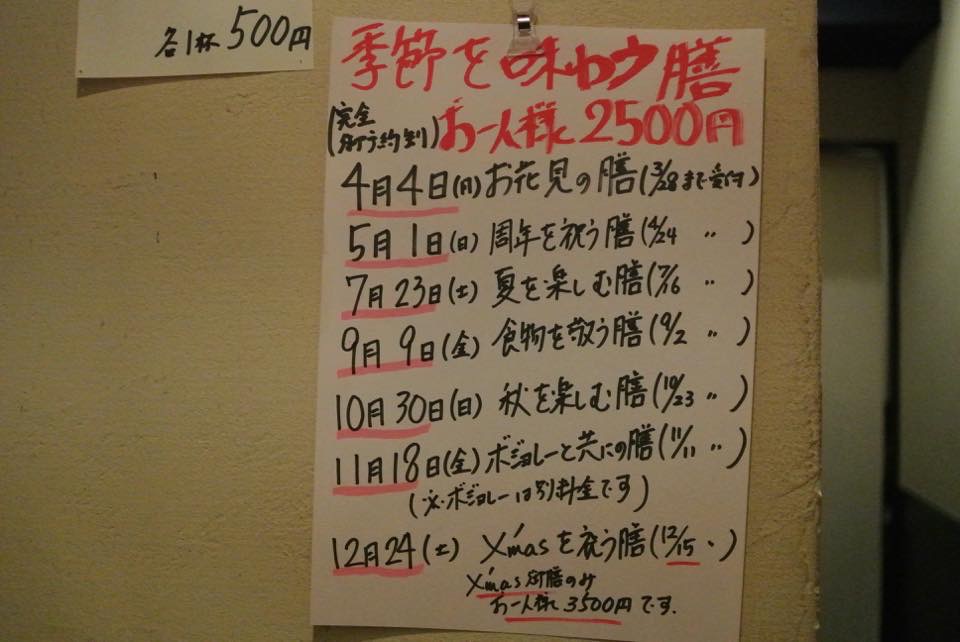 各1杯500円
季節を味わう膳
(完全予約制)お一人様2500円
4月4日(月)お花見の膳(3/28まで受付)
5月1日(日)周年を祝う膳(4/24 〃)
7月23日(土)夏を楽しむ膳(7/16 〃)
9月9日(金)食物を敬う膳(9/2 〃)
10月30日(日)秋を楽しむ膳(10/23 〃)
11月18日(金)ボジョレーと共にの膳(11/11 〃)
(※ボジョレーは別料金です)
12月24(土)X'masを祝う膳(12/15 〃)
X'mas 膳のみ
お一人様 3500円です.